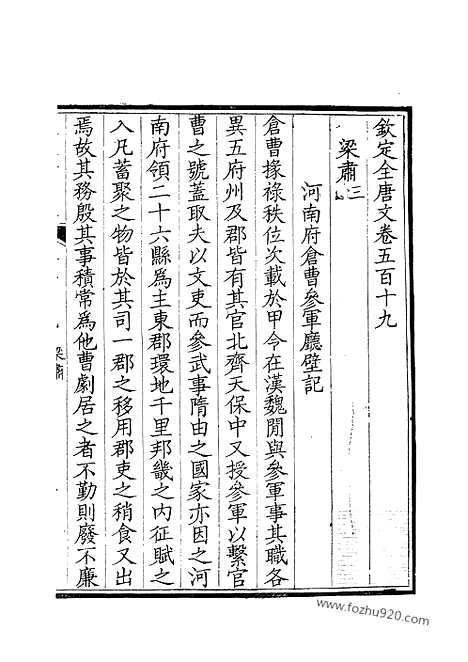 欽定全唐文卷五百十九
梁肅三
河南府倉曹參軍廳壁記
倉曹掾祿秩位次載於甲令在漢魏閒與參軍事其職各
異五府州及郡皆有其官北齊天保中又授參軍以繫官
曹之號蓋取夫以文吏而參武事隋由之國家亦因之河
南府領二十六縣爲主東郡環地千里邦畿之內征賦之
入凡蓄聚之物皆於其司一郡之移用郡吏之稍食又出
焉故其務殷其事積常爲他曹劇居之者不勤則廢不廉
梁肅
www.fozhu920.com